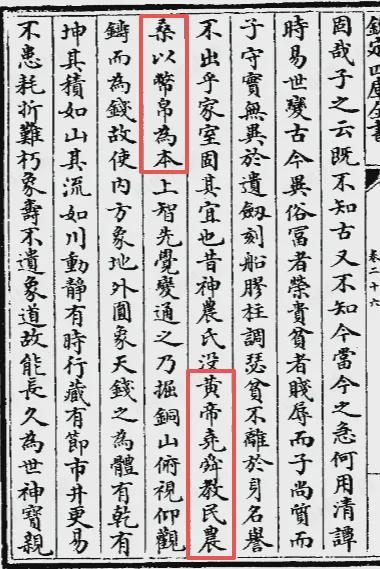 欽定四庫全書
卷二十六
固哉子之云既不知古又不知今當今之急何用清譚
時易世變古今異俗冨者榮貴貧者賤辱而子尚質而
子守實無異於遺劔刻船膠柱調瑟貧不離於身名譽
不出乎家室固其宜也昔神農氏没黄帝堯舜教民農
桑以幣帛為本上智先覺變通之乃掘銅山俯視仰觀
鑄而為錢故使内方象地外圎象天錢之為體有乾有
坤其積如山其流如川動靜有時行藏有節市井更易
不患耗折難朽象壽不遺象道故能長久為世神寳親